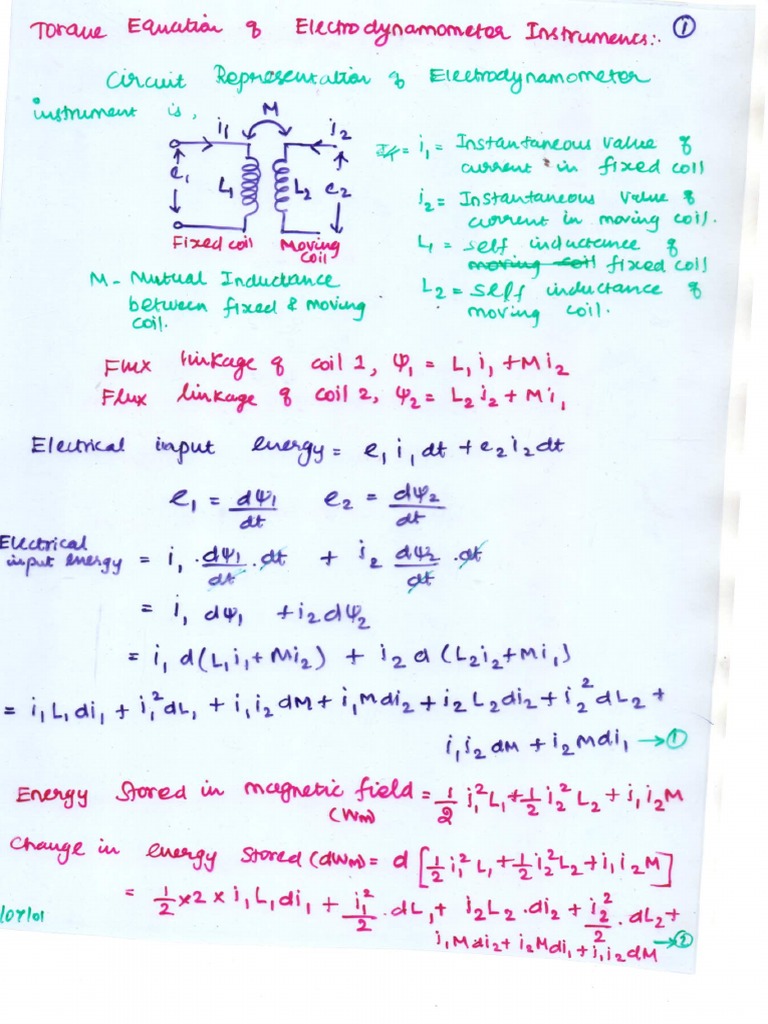 Torque Equation of Electrodynamometer Instruments:. ①
Circuit Representation of Electrodynamometer
instrument is,
M
i₁ i₂
e₁ L₁ L₂ e₂
Fixed coil Moving
coil
i₁ = Instantaneous value of
current in fixed coil
i₂ = Instantaneous value of
current in moving coil.
L₁ = self inductance of
moving coil fixed coil
L₂ = self inductance of
moving coil.
M - Mutual Inductance
between fixed & moving
coil.
Flux linkage of coil 1, Ψ₁ = L₁i₁ + Mi₂
Flux linkage of coil 2, Ψ₂ = L₂i₂ + Mi₁
Electrical input energy = e₁i₁dt + e₂i₂dt
e₁ = dΨ₁/dt e₂ = dΨ₂/dt
Electrical
input energy = i₁ . dΨ₁/dt . dt + i₂ dΨ₂/dt . dt
= i₁ dΨ₁ + i₂dΨ₂
= i₁ d(L₁i₁ + Mi₂) + i₂ d(L₂i₂ + Mi₁)
= i₁L₁di₁ + i₁²dL₁ + i₁i₂dM + i₁Mdi₂ + i₂L₂di₂ + i₂²dL₂ +
i₁i₂dM + i₂Mdi₁ → ①
Energy Stored in magnetic field = 1/2 i₁²L₁ + 1/2 i₂²L₂ + i₁i₂M
(Wm)
Change in energy stored (dWm) = d [1/2 i₁²L₁ + 1/2 i₂²L₂ + i₁i₂M]
= 1/2 × 2 × i₁L₁di₁ + i₁²/2 . dL₁ + i₂L₂ . di₂ + i₂²/2 . dL₂ +
i₁Mdi₂ + i₂Mdi₁ + i₁i₂dM → ②